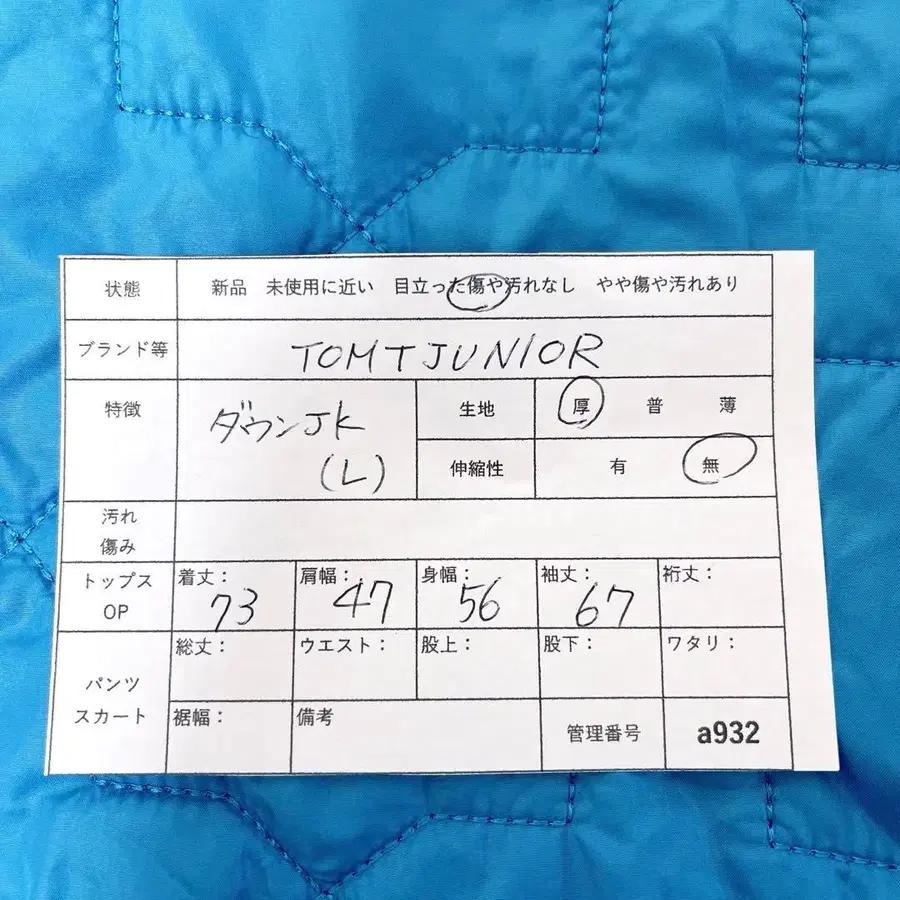 状態 新品 未使用に近い 目立った傷や汚れなし やや傷や汚れあり
ブランド等 TOMTJUNIOR
特徴 ダウンJK 生地 厚 普 薄
(L) 伸縮性 有 無
汚れ
傷み
トップス 着丈: 肩幅: 身幅: 袖丈: 裄丈:
OP 73 47 56 67
総丈: ウエスト: 股上: 股下: ワタリ:
パンツ
スカート 裾幅: 備考 管理番号 a932